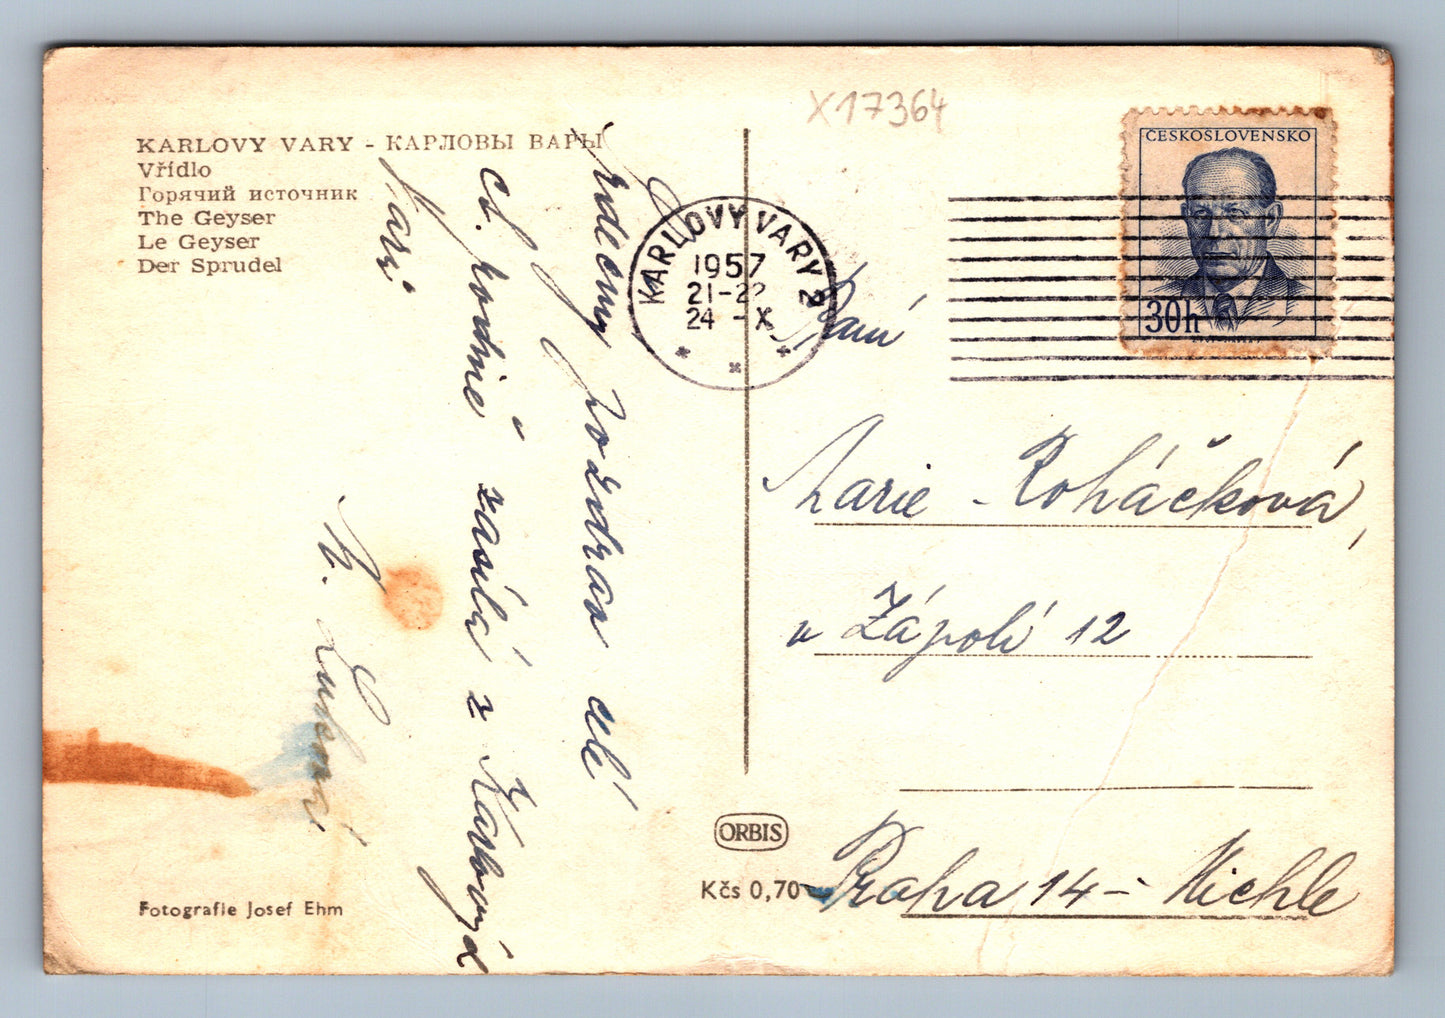 X17364
KARLOVY VARY - КАРЛОВЫ ВАРЫ
Vřídlo
Горячий источник
The Geyser
Le Geyser
Der Sprudel
ČESKOSLOVENSKO
30h
KARLOVY VARY 2
1957
21-22
24 - X
Srdečný pozdrav celé
ct. rodině zasílá z Karlových
Varů
Paní
Marie Roháčková,
v Zápolí 12
Praha 14 - Michle
ORBIS
Kčs 0,70
Fotografie Josef Ehm